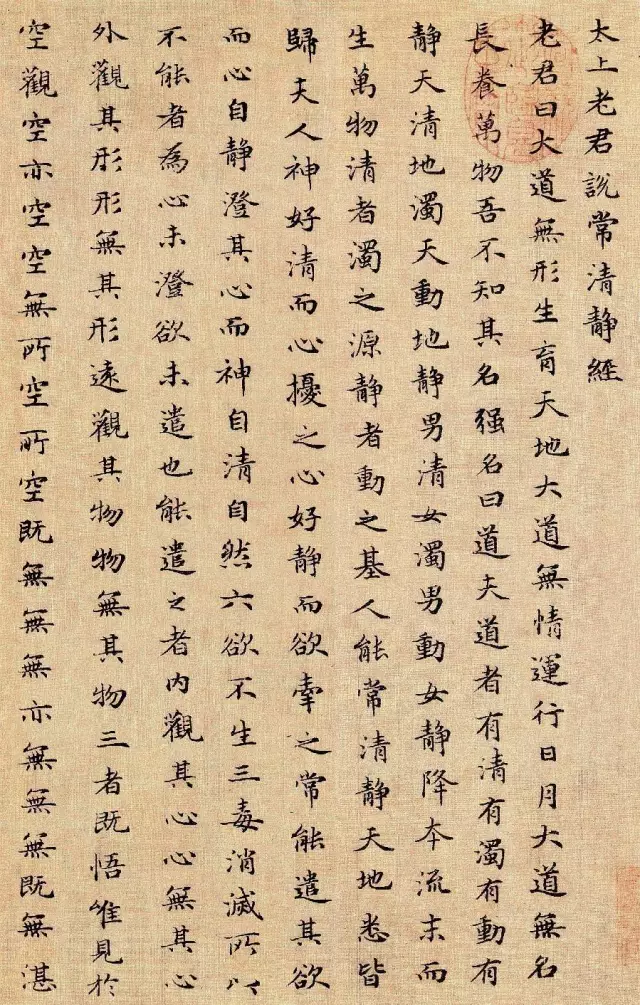 太上老君說常清靜經
老君曰大道無形生育天地大道無情運行日月大道無名
長養萬物吾不知其名强名曰道夫道者有清有濁有動有
靜天清地濁天動地靜男清女濁男動女靜降夲流末而
生萬物清者濁之源靜者動之基人能常清靜天地悉皆
歸夫人神好清而心擾之心好靜而欲牽之常能遣其欲
而心自靜澄其心而神自清自然六欲不生三毒消滅所以
不能者為心未澄欲未遣也能遣之者內觀其心心無其心
外觀其形形無其形遠觀其物物無其物三者既悟唯見於
空觀空亦空空無所空所空既無無無亦無無無既無湛